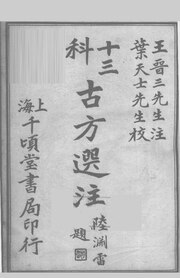 王晋三先生注
葉天士先生校
十三科
古方選注
陸淵雷題
上海千頃堂書局印行